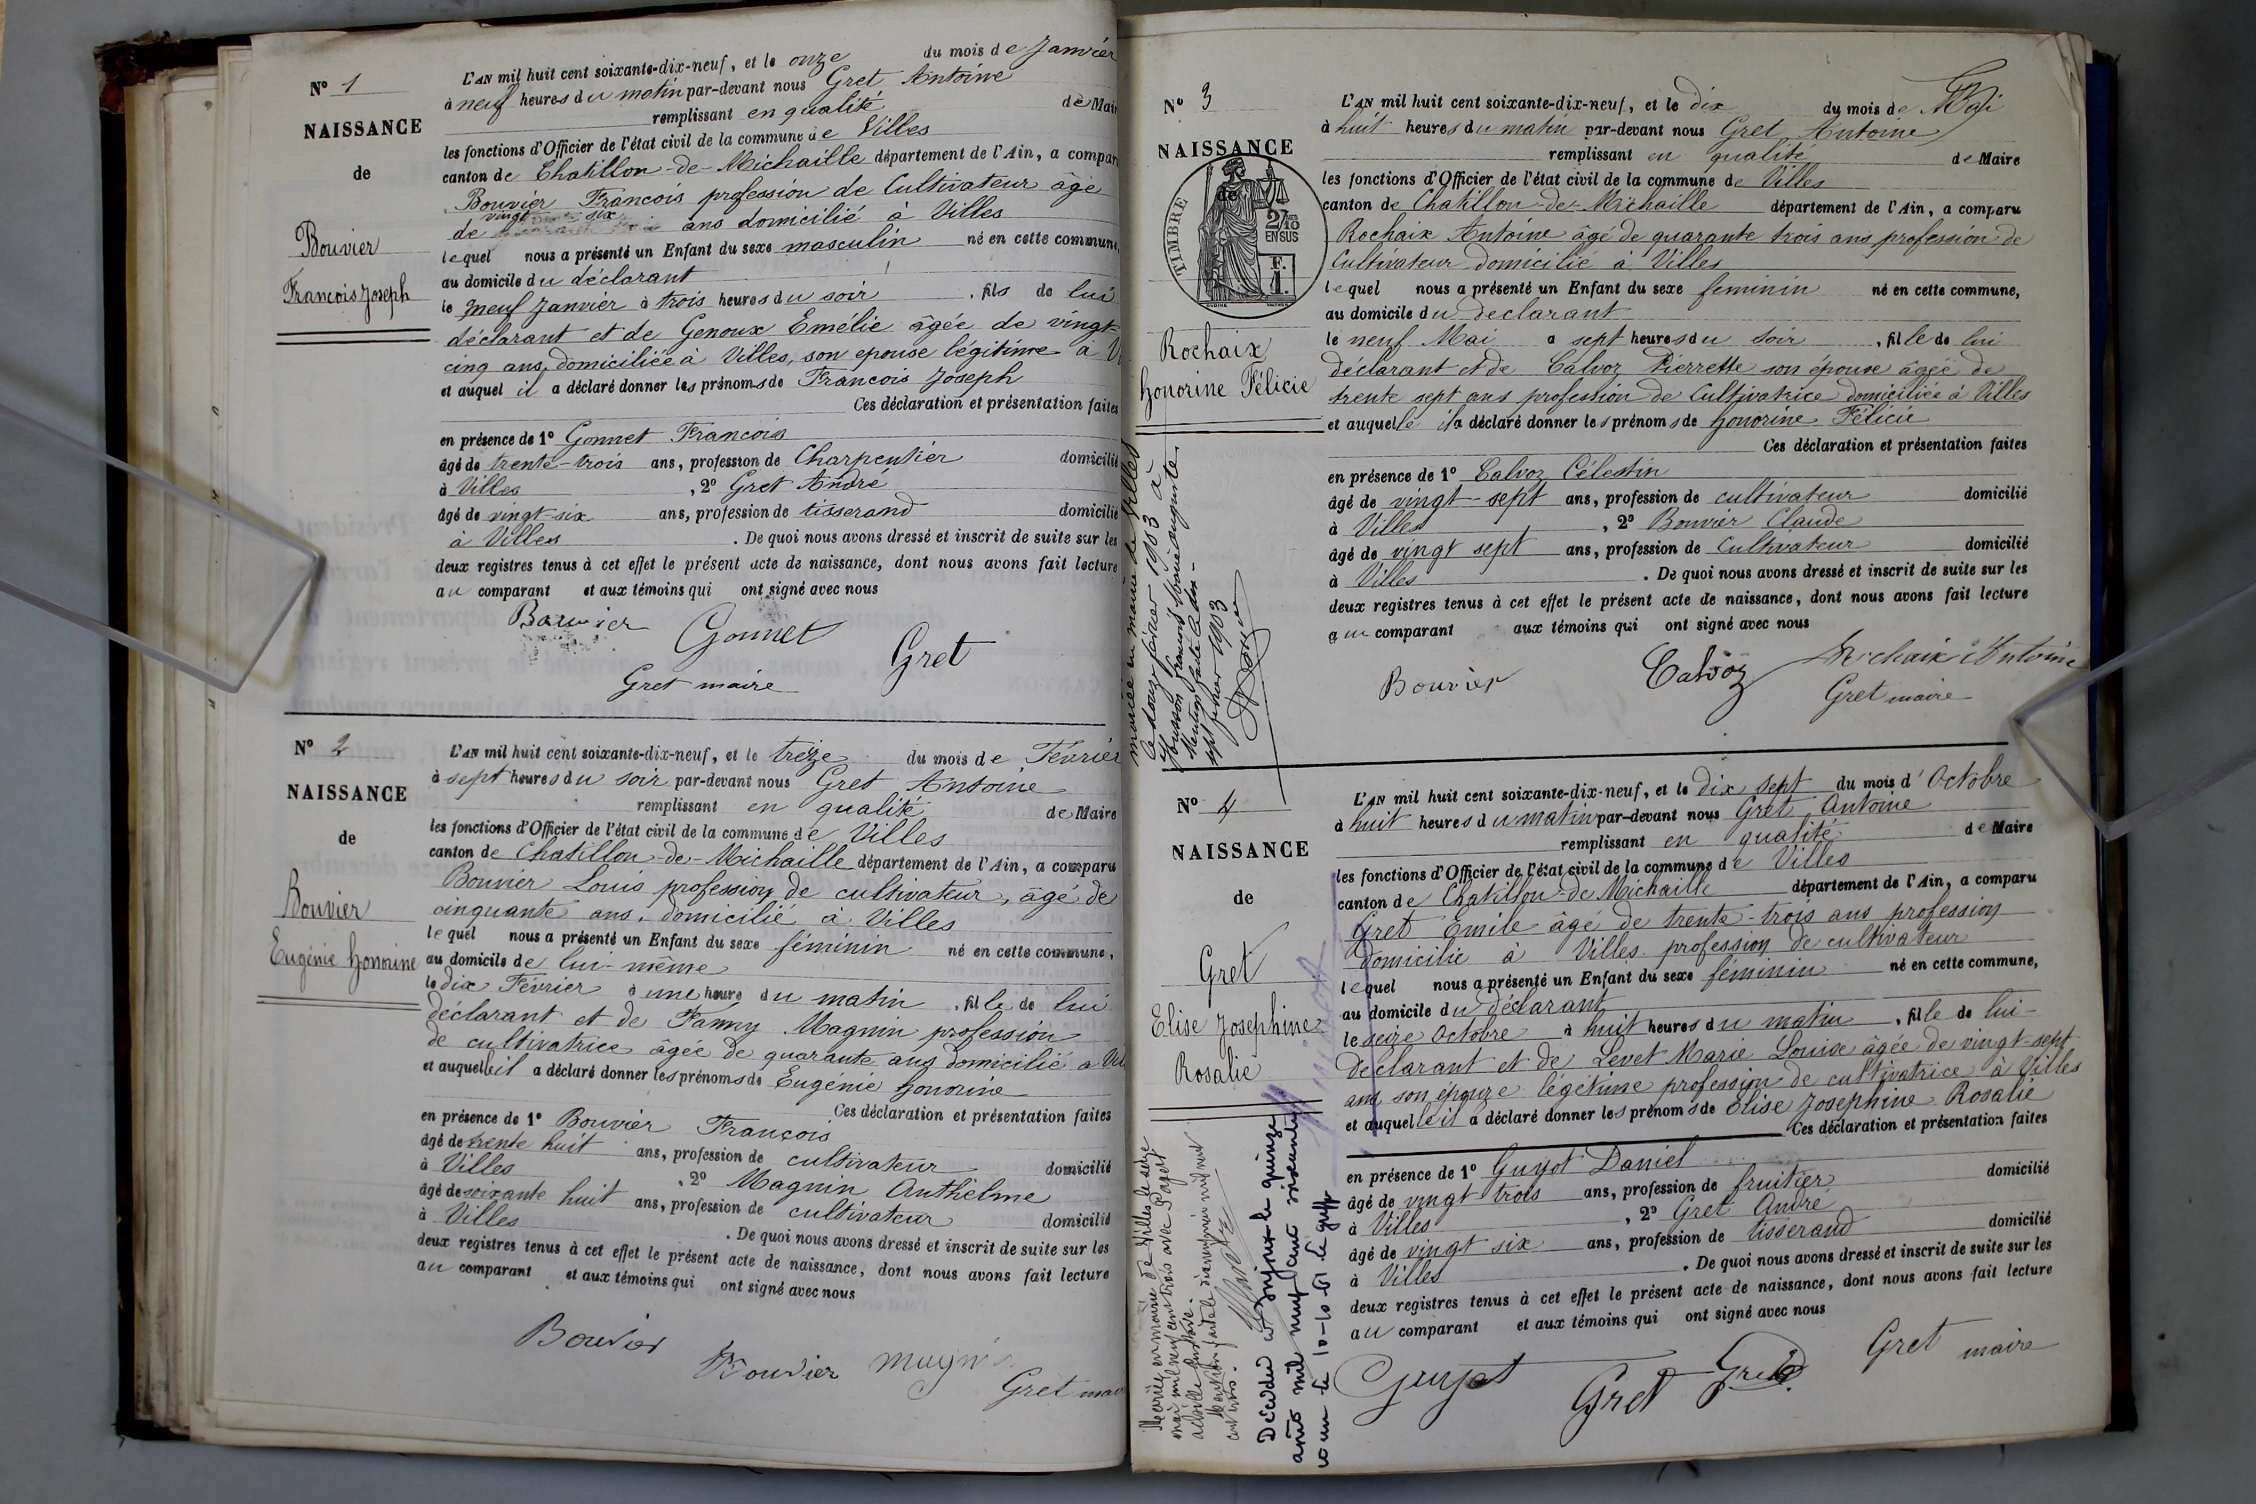 N° 1
NAISSANCE
de
Bouvier
François Joseph
L'AN mil huit cent soixante-dix-neuf, et le onze du mois de Janvier
à neuf heures du matin par-devant nous Gret Antoine
remplissant en qualité de Mair
les fonctions d'Officier de l'état civil de la commune de Villes
canton de Chatillon-de-Michaille département de l'Ain, a comparu
Bouvier François profession de Cultivateur âgé
de vingt six ans domicilié à Villes
lequel nous a présenté un Enfant du sexe masculin né en cette commune,
au domicile du déclarant
le neuf Janvier à trois heures du soir, fils de lui
déclarant et de Genoux Emélie âgée de vingt
cinq ans, domiciliée à Villes, son epouse légitime à
et auquel il a déclaré donner les prénoms de François Joseph
Ces déclaration et présentation faites
en présence de 1° Gonnet François
âgé de trente-trois ans, profession de Charpentier domicilié
à Villes, 2° Gret André
âgé de vingt-six ans, profession de tisserand domicilié
à Villes. De quoi nous avons dressé et inscrit de suite sur les
deux registres tenus à cet effet le présent acte de naissance, dont nous avons fait lecture
au comparant et aux témoins qui ont signé avec nous
Bouvier Gonnet Gret
Gret maire
N° 2
NAISSANCE
de
Bouvier
Eugénie honorine
L'AN mil huit cent soixante-dix-neuf, et le treize du mois de Février
à sept heures du soir par-devant nous Gret Antoine
remplissant en qualité de Maire
les fonctions d'Officier de l'état civil de la commune de Villes
canton de Chatillon-de-Michaille département de l'Ain, a comparu
Bouvier Louis profession de cultivateur, âgé de
cinquante ans, domicilié à Villes
lequel nous a présenté un Enfant du sexe féminin né en cette commune,
au domicile de lui-même
le dix Février à une heure du matin, fille de lui
déclarant et de Fanny Magnin profession
de cultivatrice âgée de quarante ans domicilié à
et auquelle il a déclaré donner les prénoms de Eugénie honorine
Ces déclaration et présentation faites
en présence de 1° Bouvier François
âgé de trente huit ans, profession de cultivateur domicilié
à Villes, 2° Magnin Anthelme
âgé de soixante huit ans, profession de cultivateur domicilié
à Villes. De quoi nous avons dressé et inscrit de suite sur les
deux registres tenus à cet effet le présent acte de naissance, dont nous avons fait lecture
au comparant et aux témoins qui ont signé avec nous
Bouvier Bouvier
Gret
N° 3
NAISSANCE
de
TIMBRE
2/10 EN SUS
F. 1.
Rochaix
honorine Félicie
mariée en mairie de Villes
le douze février 1903 à
François Auguste
Mention faite le dix-
sept février 1903
L'AN mil huit cent soixante-dix-neuf, et le dix du mois de Mai
à huit heures du matin par-devant nous Gret Antoine
remplissant en qualité de Maire
les fonctions d'Officier de l'état civil de la commune de Villes
canton de Chatillon-de-Michaille département de l'Ain, a comparu
Rochaix Antoine âgé de quarante trois ans profession de
Cultivateur domicilié à Villes
lequel nous a présenté un Enfant du sexe féminin né en cette commune,
au domicile du déclarant
le neuf Mai à sept heures du soir, fille de lui
déclarant et de Calvoz Pierrette son épouse âgée de
trente sept ans profession de Cultivatrice domiciliée à Villes
et auquelle il a déclaré donner les prénoms de honorine Félicie
Ces déclaration et présentation faites
en présence de 1° Calvoz Célestin
âgé de vingt-sept ans, profession de cultivateur domicilié
à Villes, 2° Bouvier Claude
âgé de vingt sept ans, profession de Cultivateur domicilié
à Villes. De quoi nous avons dressé et inscrit de suite sur les
deux registres tenus à cet effet le présent acte de naissance, dont nous avons fait lecture
au comparant aux témoins qui ont signé avec nous
Bouvier Calvoz Rochaix Antoine
Gret maire
N° 4
NAISSANCE
de
Gret
Elise Josephine
Rosalie
Mariée en mairie de Villes le seize
mai mil neuf cent trois avec
Décédée à le quinze
août mil neuf cent soixante
L'AN mil huit cent soixante-dix-neuf, et le dix sept du mois d'Octobre
à huit heures du matin par-devant nous Gret Antoine
remplissant en qualité de Maire
les fonctions d'Officier de l'état civil de la commune de Villes
canton de Chatillon-de-Michaille département de l'Ain, a comparu
Gret Emile âgé de trente-trois ans profession
domicilié à Villes profession de cultivateur
lequel nous a présenté un Enfant du sexe féminin né en cette commune,
au domicile du déclarant
le seize Octobre à huit heures du matin, fille de lui-
déclarant et de Levet Marie Louise âgée de vingt-sept
ans son épouze légitime profession de cultivatrice à Villes
et auquelle il a déclaré donner les prénoms de Elise Josephine Rosalie
Ces déclaration et présentation faites
en présence de 1° Guyot Daniel
âgé de vingt trois ans, profession de fruitier domicilié
à Villes, 2° Gret André
âgé de vingt six ans, profession de tisserand domicilié
à Villes. De quoi nous avons dressé et inscrit de suite sur les
deux registres tenus à cet effet le présent acte de naissance, dont nous avons fait lecture
au comparant et aux témoins qui ont signé avec nous
Guyot Gret Gret
Gret maire